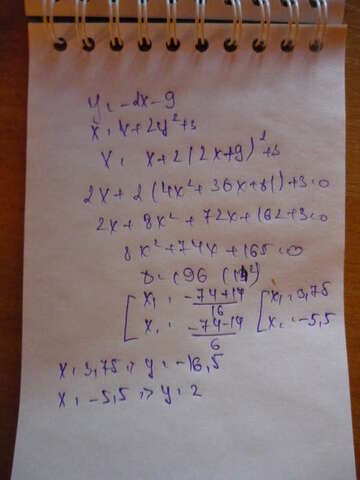 y = -2x-9
x = x+2y²+3
x = x+2(2x+9)²+3
2x+2(4x²+36x+81)+3=0
2x+8x²+72x+162+3=0
8x²+74x+165=0
D=196 (14²)
[ x₁ = -74+14/16 [ x₁ = 3,75
x = -74-14/6 x = -5,5
x = 3,75 => y = -16,5
x = -5,5 => y = 2